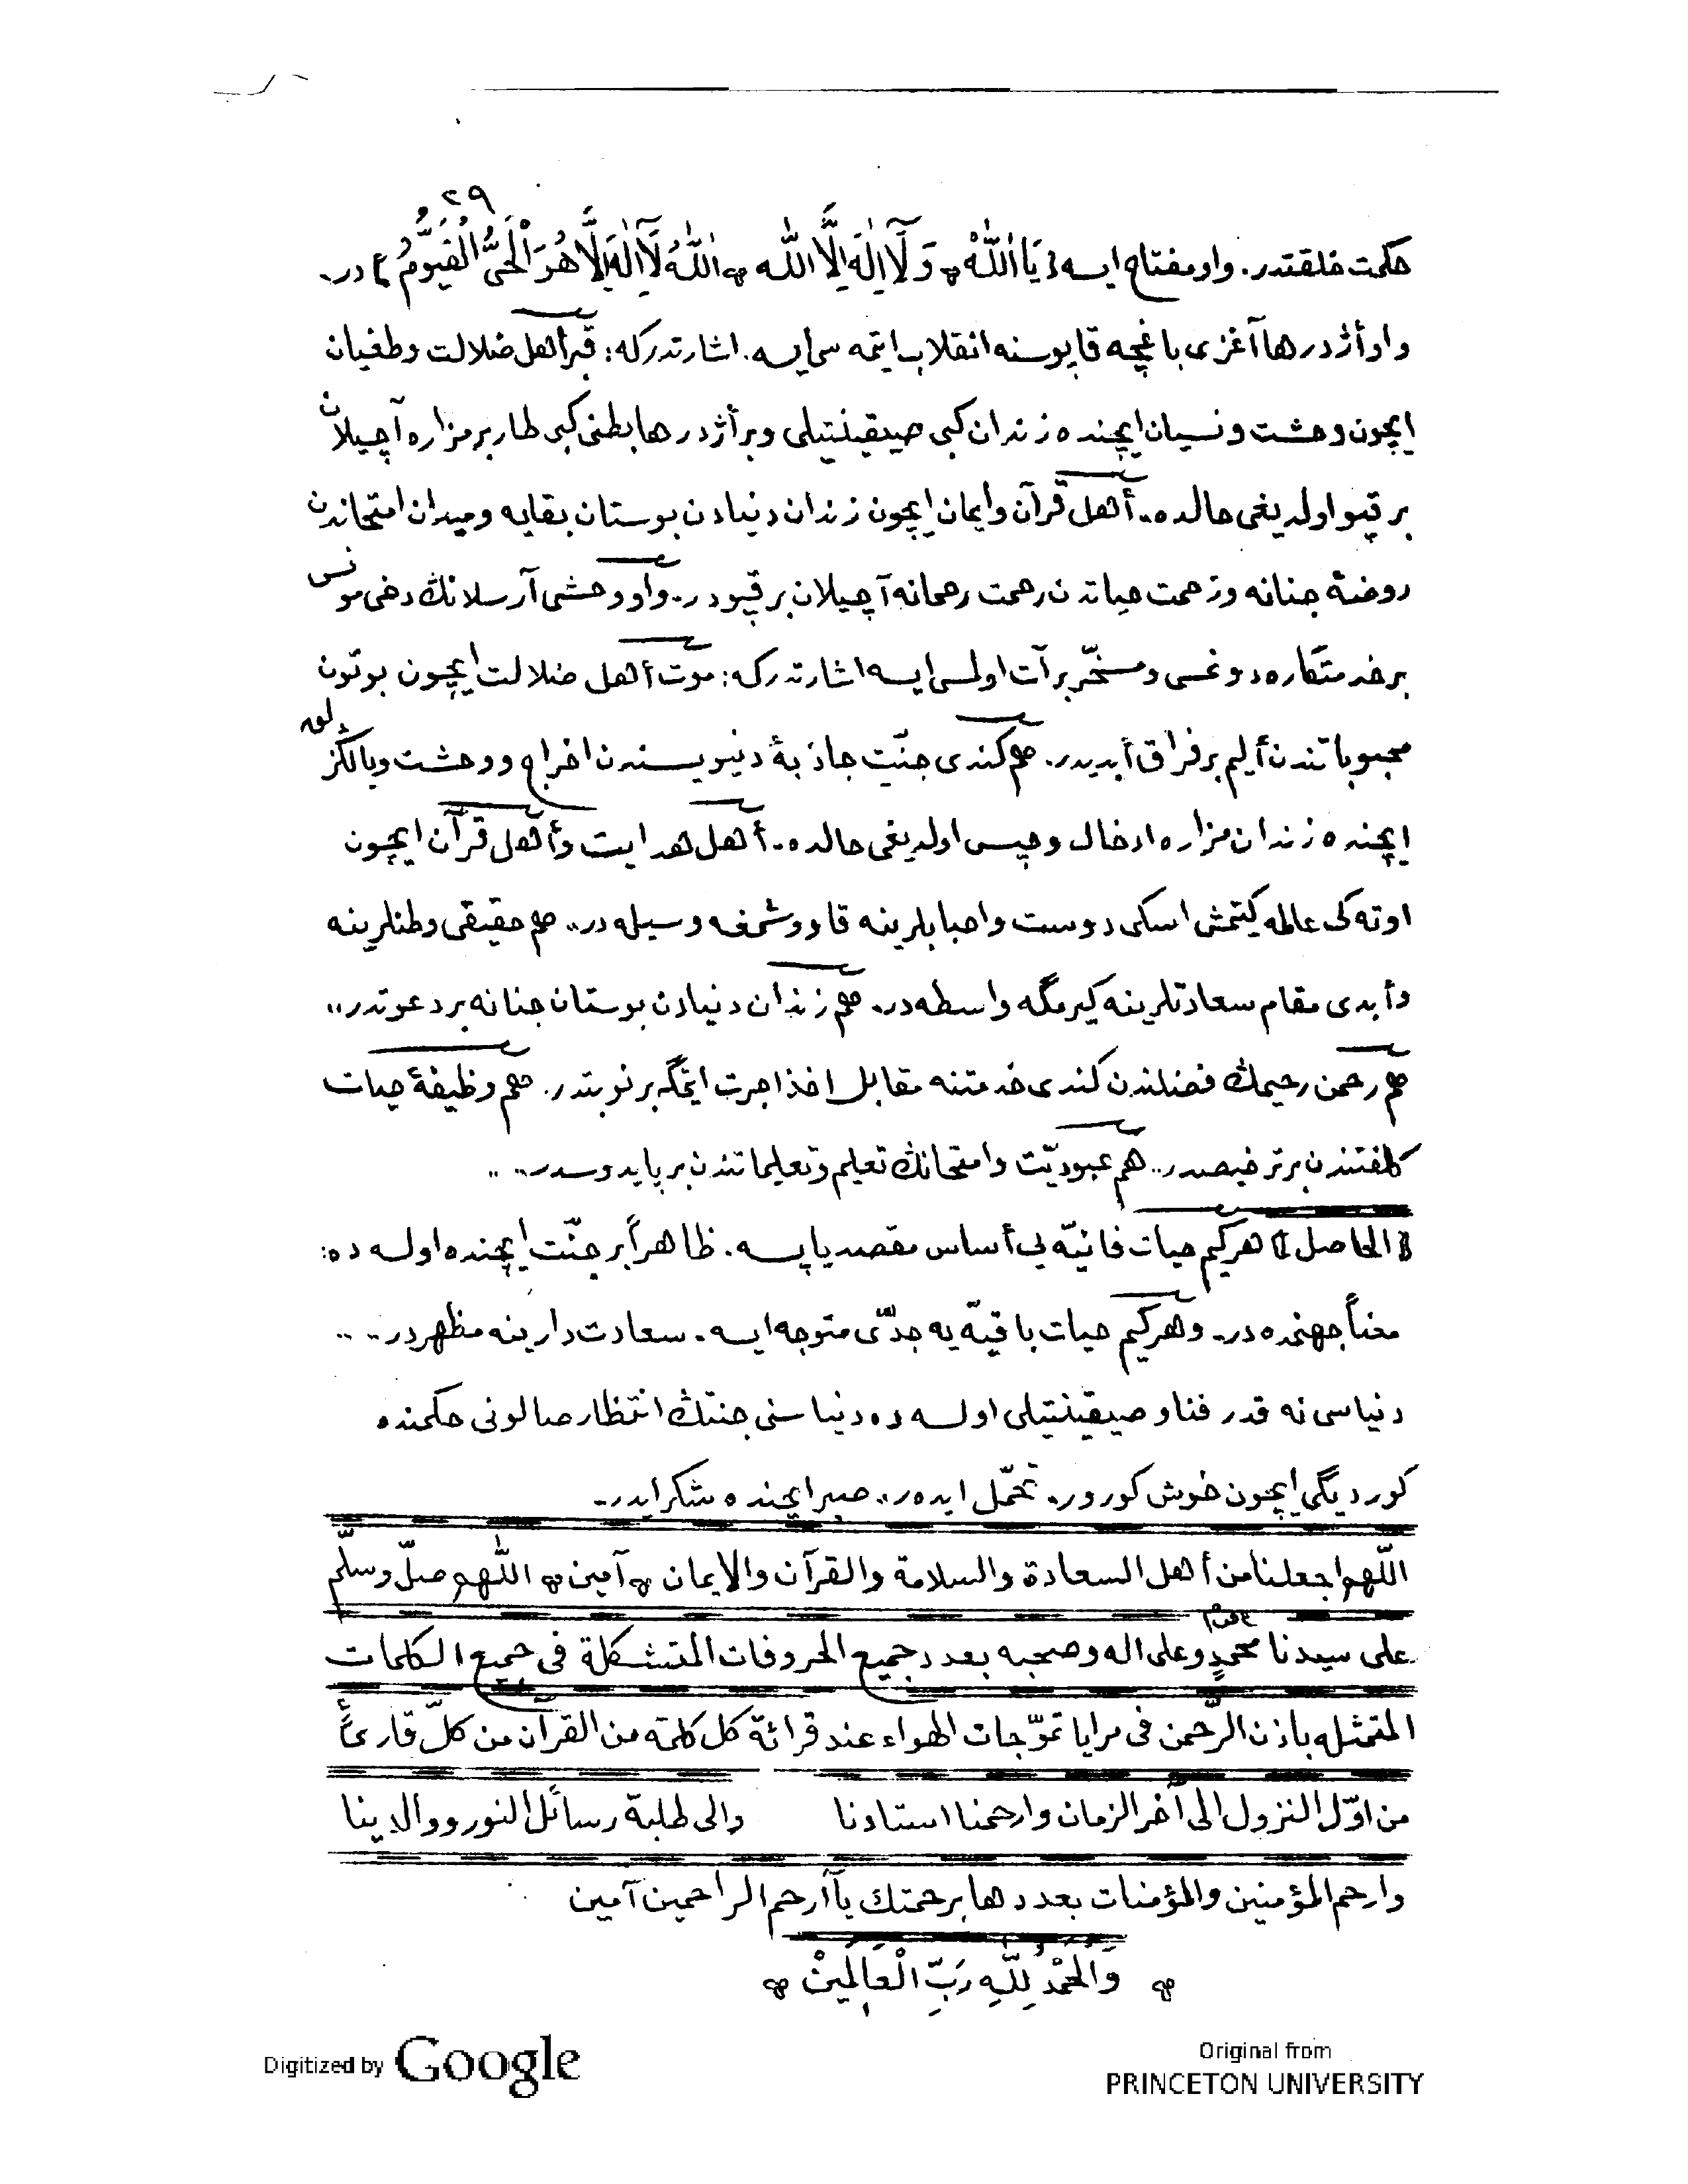 ٢٩
حكمت خلقتدر. واو مفتاح ايسه [يَا اَللّٰهُ ❊ وَ لَآ اِلٰهَ اِلَّا اللّٰه ❊ اَللّٰهُ لَآ اِلٰهَ اِلَّا هُوَ الْحَىُّ الْقَيُّومُ] در.
واو أژدرها آغزى باغچه قاپوسنه انقلاب ايتمه سى ايسه. اشارتدركه: قبر أهل ضلالت وطغيان
ايچون وحشت ونسيان ايچنده زندان كبى صيقينتيلى وبر أژدرها بطنى كبى طار بر مزاره آچيلان
بر قپو اولديغى حالده.. أهل قرآن وايمان ايچون زندان دنيادن بوستان بقايه وميدان امتحاندن
روضۀ جنانه وزحمت حياتدن رحمت رحمانه آچيلان بر قپودر.. واو وحشى آرسلانڭ دخى مونس
بر خدمتكاره دونمسى ومسخّر بر آت اولمسى ايسه اشارتدركه: موت أهل ضلالت ايچون بوتون
محبوباتندن أليم بر فراق أبديدر. هم كندى جنّت جاذبۀ دنيويسندن اخراج ووحشت ويالڭزلق
ايچنده زندان مزاره ادخال وحپس اولديغى حالده.. أهل هدايت وأهل قرآن ايچون
اوته كى عالمه كيتمش اسكى دوست واحبابلرينه قاووشمغه وسيله در.. هم حقيقى وطنلرينه
وأبدى مقام سعادتلرينه كيرمگه واسطه در. هم زندان دنيادن بوستان جنانه بر دعوتدر..
هم رحمن رحيمڭ فضلندن كندى خدمتنه مقابل اخذ اجرت ايتمگه بر نوبتدر. هم وظيفۀ حيات
كلفتندن بر ترخيصدر.. هم عبوديّت وامتحانڭ تعليم وتعليماتندن بر پايدوسدر.. ..
[الحاصل] هركيم حيات فانيّه يى أساس مقصد ياپسه. ظاهراً بر جنّت ايچنده اولسه ده:
معناً جهنمده در. وهركيم حيات باقيّه يه جدّى متوجه ايسه. سعادت دارينه مظهردر.. ..
دنياسى نه قدر فنا وصيقينتيلى اولسه ده دنياسنى جنتڭ انتظار صالونى حكمنده
كورديگى ايچون خوش كورور. تحمّل ايدەر.. صبر ايچنده شكر ايدر..
اللّهم اجعلنا من أهل السعادة والسلامة والقرآن والايمان ❊ آمين ❊ اللّٰهم صلّ وسلّم
على سيدنا محمدٍ وعلى اله وصحبه بعدد جميع الحروفات المتشكلة فى جميع الكلمات
المتمثله باذن الرّحمن فى مرايا تموّجات الهواء عند قرائة كل كلمة من القرآن من كلّ قارئ
من اوّل النزول الى آخر الزمان وارحمنا استادنا والى طلبة رسائل النور ووالدينا
وارحم المؤمنين والمؤمنات بعددها برحمتك يآ أرحم الراحمين آمين
❊ وَالْحَمْدُ لِلّٰهِ رَبِّ الْعَالَمِينْ ❊
Digitized by Google
Original from
PRINCETON UNIVERSITY